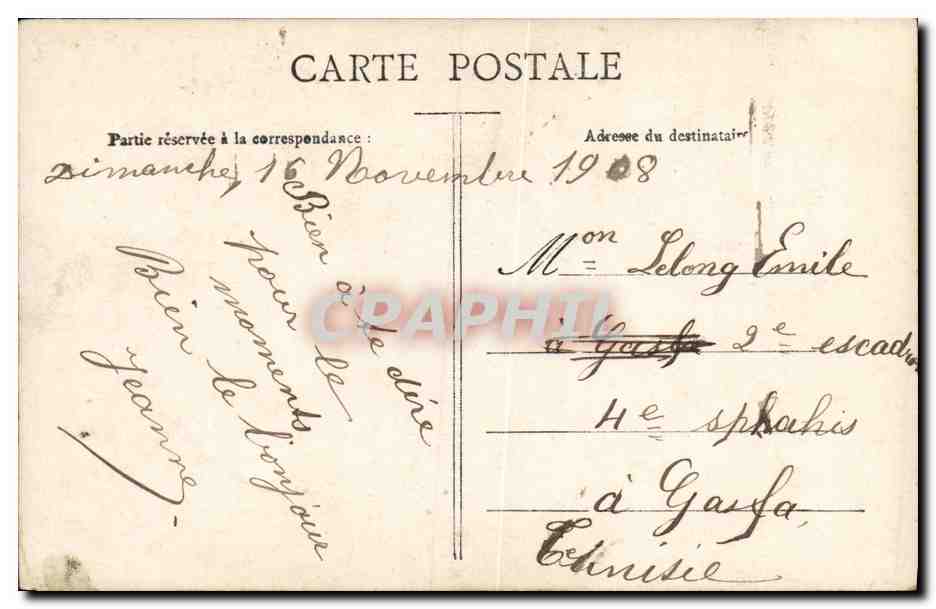 CARTE POSTALE
Partie réservée à la correspondance :
Adresse du destinataire
Dimanche, 16 Novembre 1908
Bien à te dire
pour le
moments.
Bien le bonjour
Jeanne
Mon Lelong Emile
à Gasfa 2e escadron
4e sphahis
à Gasfa,
Tunisie
CRAPHIL